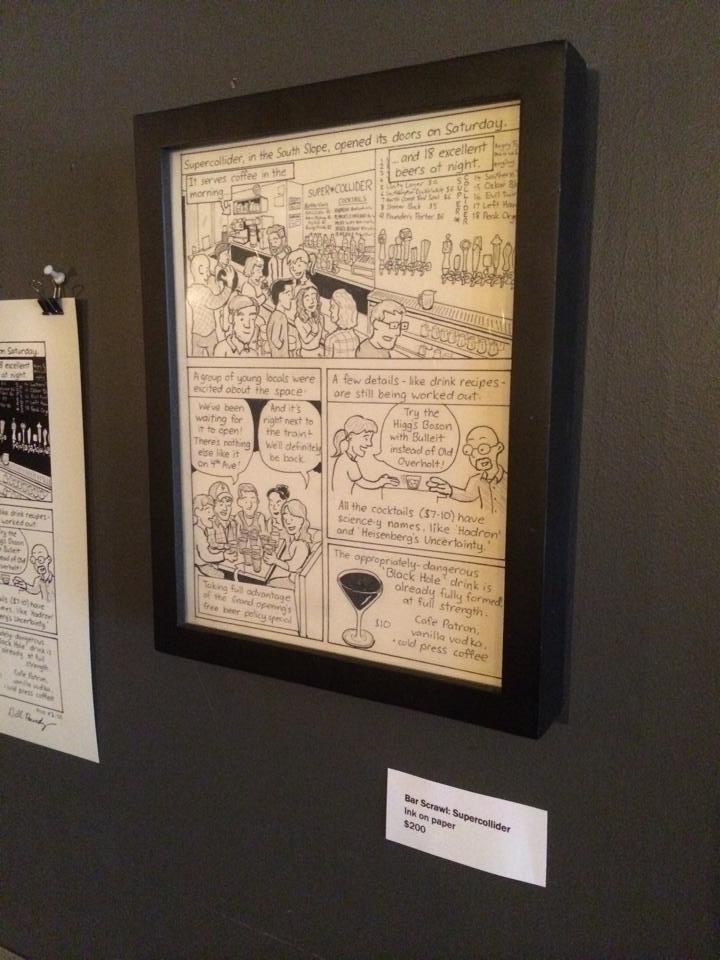 Supercollider, in the South Slope, opened its doors on Saturday.
It serves coffee in the
morning...
SUPER*COLLIDER
COCKTAILS
...and 18 excellent
beers at night.
SUPER
COLLIDER
Founders Porter $6
14 Southern
16 Evil
17 Left Ha
18 Peak Or
A group of young locals were
excited about the space:
We've been
waiting for
it to open!
There's nothing
else like it
on 4th Ave!
And it's
right next to
the train!
We'll definitely
be back.
Taking full advantage
of the Grand opening's
free beer policy special
A few details - like drink recipes -
are still being worked out:
Try the
Higgs Boson
with Bulleit
instead of Old
Overholt!
All the cocktails ($7-10) have
science-y names, like 'Hadron'
and 'Heisenberg's Uncertainty.'
The appropriately-dangerous
'Black Hole' drink is
already fully formed,
at full strength.
$10
Cafe Patron,
vanilla vodka,
+ cold press coffee
on Saturday.
excellent
at night.
like drink recipes
worked out
Try the
Higgs Boson
Bulleit
of Old
Overholt!
have
like 'Hadron'
Uncertainty.'
dangerous
Hole' drink is
already at full
strength.
Cafe Patron,
vanilla vodka,
+ cold press coffee
Bar Scrawl: Supercollider
Ink on paper
$200